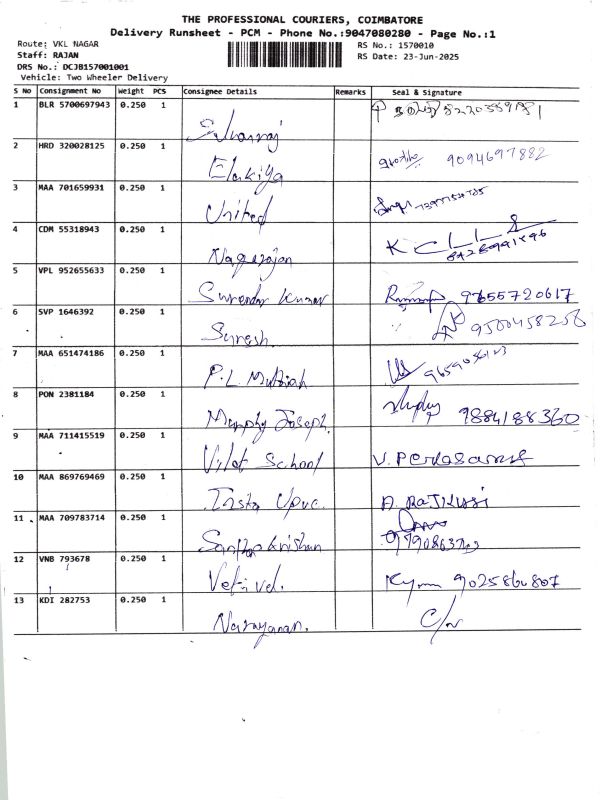 THE PROFESSIONAL COURIERS, COIMBATORE
Delivery Runsheet - PCM - Phone No.:9047080280 - Page No.:1
Route: VKL NAGAR
RS No.: 1570010
Staff: RAJAN
RS Date: 23-Jun-2025
DRS No.: DCJB157001001
Vehicle: Two Wheeler Delivery
S No Consignment No Weight PCS Consignee Details Remarks Seal & Signature
1 BLR 5700697943 0.250 1
2 HRD 320028125 0.250 1 9094697882
Elakiya
3 MAA 701659931 0.250 1
United
4 CDM 55318943 0.250 1
Nagarajan
5 VPL 952655633 0.250 1
Surendar Kumar 97655720617
6 SVP 1646392 0.250 1 9500458258
Suresh.
7 MAA 651474186 0.250 1
P.L. Muthiah
8 PON 2381184 0.250 1
Murphy Joseph. 9884188360
9 MAA 711415519 0.250 1
School
10 MAA 869769469 0.250 1
Insta Upvc.
11 MAA 709783714 0.250 1
12 VNB 793678 0.250 1
Vetrivel. 9025860807
13 KDI 282753 0.250 1
Narayanan.